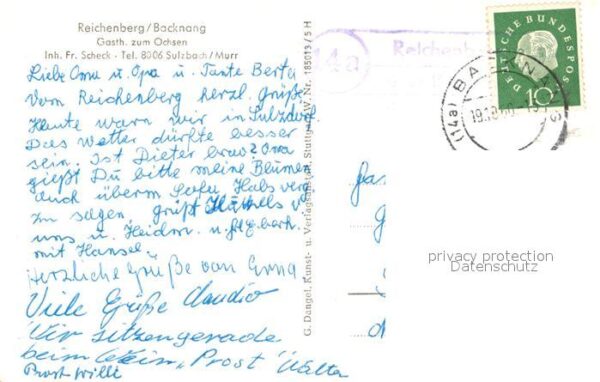 Reichenberg/Backnang
Gasth. zum Ochsen
Inh. Fr. Scheck - Tel. 8006 Sulzbach/Murr
Liebe Oma u. Opa u. Tante Berta
Vom Reichenberg herzl. Grüße
Heute waren wir in Sulzdorf.
Das Wetter dürfte besser
sein. Ist Dieter brav? Oma
gießt Du bitte meine Blumen
auch überm Sofa, Habs verg.
zu sagen, grüßt v.
uns u. Heidm. u.
mit Hansel.
Herzliche Grüße von Erna
Viele Grüße Claudio
Wir sitzen gerade
beim Wein, "Prost" Walter
Prost Willi
G. Dangel, Kunst- u. Verlagsanstalt, Stuttgart W, Nr. 185013/5 H
14a
Reichenb
DEUTSCHE BUNDESPOST
10
(14a) BACKNANG
privacy protection
Datenschutz